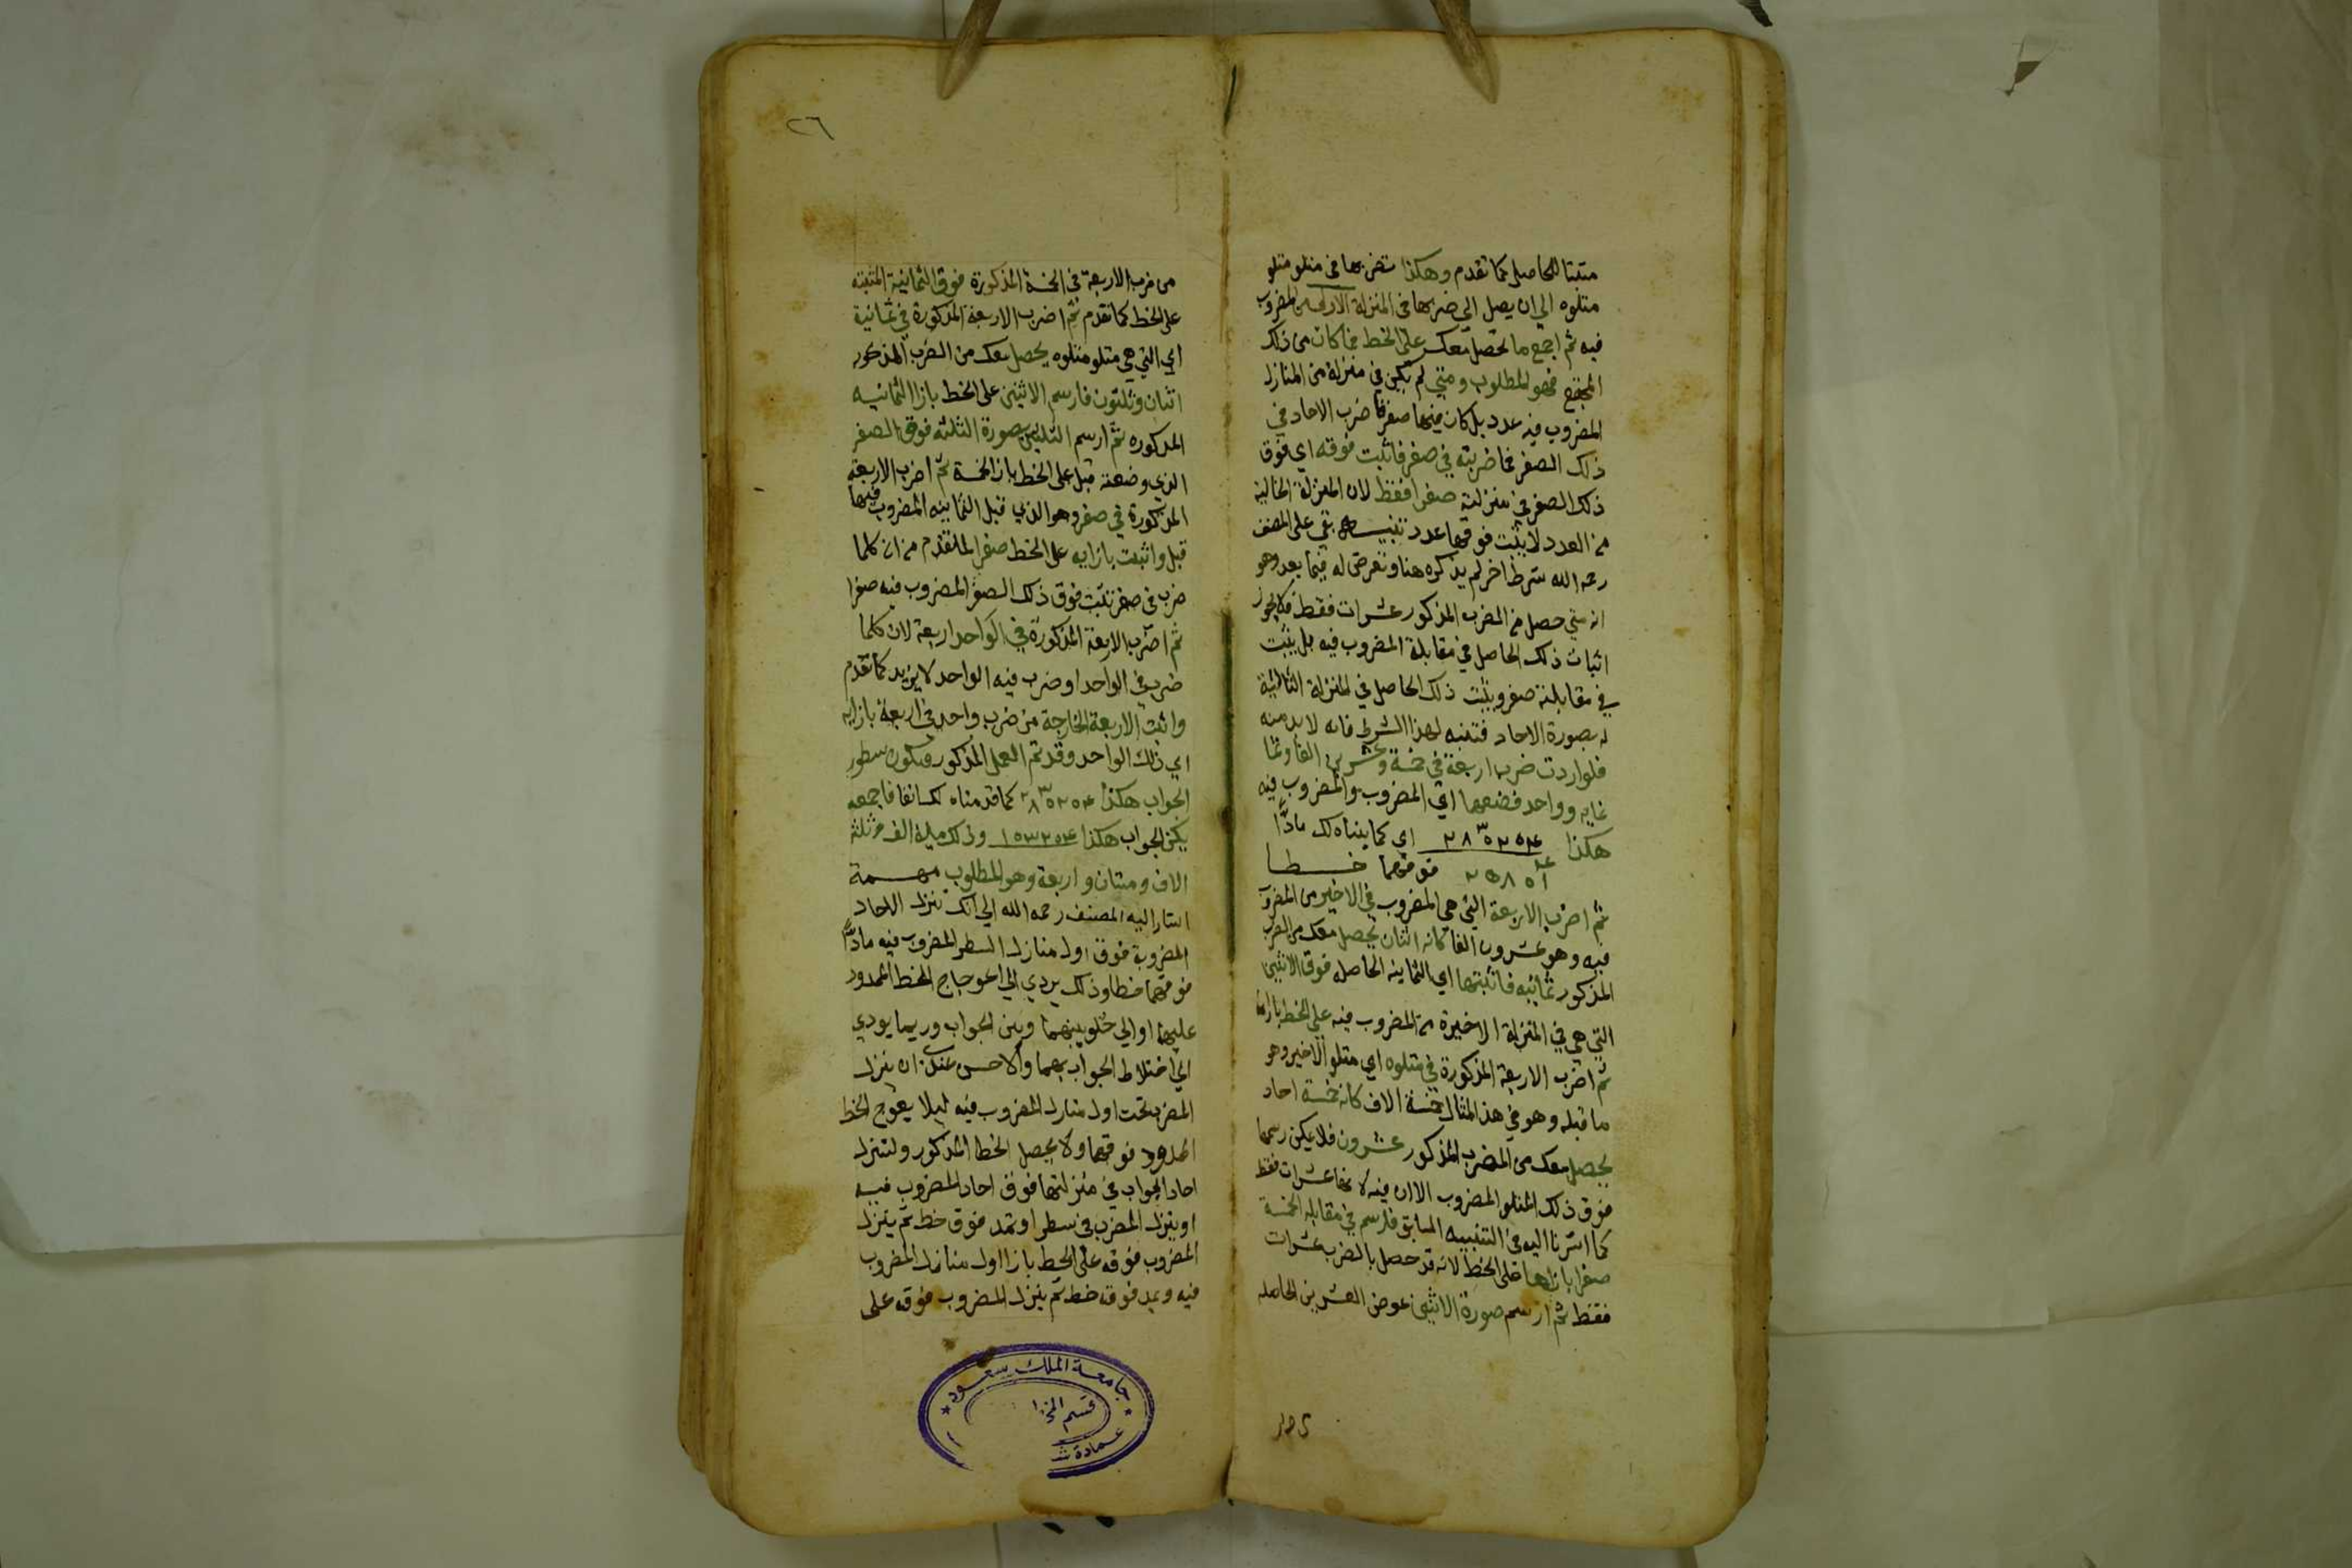 مثبتا للحاصل كما تقدم وهكذا تضربها في متلو متلو
متلوه الي ان يصل الي ضربها في المنزلة الاولي من المضروب
فيه ثم اجمع ما تحصل معك علي الخط فما كان من ذلك
المجتمع فهو المطلوب ومتي لم يكن في منزلة من المنازل
المضروب فيه عدد بل كان فيها صفر فاضرب الاحاد في
ذلك الصفر فما ضربته في صفر فاثبت فوقه اي فوق
ذلك الصفر في منزلته صفرا فقط لان المنزلة الخالية
من العدد لا يثبت فوقها عدد تنبيه بقي علي المصنف
رحمه الله شرط اخر لم يذكره هنا وتعرض له فيما بعد وهو
انه متي حصل من الضرب المذكور عشرات فقط فلا يجوز
اثبات ذلك الحاصل في مقابلة المضروب فيه بل يثبت
في مقابلته صفر ويثبت ذلك الحاصل في المنزلة التالية
له بصورة الاحاد فتنبه لهذا الشرط فانه لا بد منه
فلو اردت ضرب اربعة في خمسة وعشرين الفا وثما
نمايه وواحد فضعهما اي المضروب والمضروب فيه
هكذا اي كما بيناه لك مادًّا
فوقهما خطا
ثم اضرب الاربعة التي هي المضروب في الاخير من المضروب
فيه وهو عشرون الفا كانه اثنان يحصل معك من الضرب
المذكور ثمانيه فاثبتها اي الثمانيه الحاصله فوق الاثنين
التي هي في المنزلة الاخيرة من المضروب فيه علي الخط بازائها
ثم اضرب الاربعة المذكورة في متلوه اي متلو الاخير وهو
ما قبله وهو في هذا المثال خمسة الاف كانه خمسة احاد
يحصل معك من الضرب المذكور عشرون فلا يمكن رسمها
فوق ذلك المتلو المضروب الاان فيه لانها عشرات فقط
كما اشرنا اليه في التنبيه السابق فارسم في مقابلة الخمسة
صفرا بازائها علي الخط لانه قد حصل بالضرب عشرات
فقط ثم ارسم صورة الاثنين عوض العشرين الحاصله
٢٦
من ضرب الاربعة في الخمسة المذكورة فوق الثمانية المثبته
علي الخط كما تقدم ثم اضرب الاربعة المذكورة في ثمانية
اي التي هي متلو متلوه يحصل معك من الضرب المذكور
اثنان وثلثون فارسم الاثنين علي الخط بازا الثمانيه
المذكوره ثم ارسم الثلثين بصورة الثلثه فوق الصفر
الذي وضعته قبل علي الخط بازا الخمسة ثم اضرب الاربعة
المذكورة في صفر وهو الذي قبل الثمانيه المضروب فيها
قبل واثبت بازايه علي الخط صفرا لما تقدم من ان كلما
ضرب في صفر تثبت فوق ذلك الصفر المضروب فيه صفرا
ثم اضرب الاربعة المذكورة في الواحد اربعة لان كلما
ضرب في الواحد او ضرب فيه الواحد لا يزيد كما تقدم
واثبت الاربعة الخارجة من ضرب واحد في اربعة بازايه
اي ذلك الواحد وقد تم العمل المذكور فتكون سطور
الجواب هكذا كما قدمناه لك انفا فاجمعه
يكن الجواب هكذا وذلك ماية الف وثلثة
الاف ومئتان واربعة وهو المطلوب مهمة
اشار اليه المصنف رحمه الله الي انك تنزل الاحاد
المضروبة فوق اول منازل السطر المضروب فيه مادًّا
فوقهما خطا وذلك يردي الي اعوجاج الخط الممدود
عليهما او الي خلو بينهما وبين الجواب وربما يودي
الي اختلاط الجواب بهما والاحسن عندي ان ينزل
المضرب تحت اول منازل المضروب فيه ليلا يعوج الخط
الممدود فوقهما ولا يحصل الخطا المذكور ولتنزل
احاد الجواب في منزلتها فوق احاد المضروب فيه
او ينزل المضرب في سطر او تمد فوق خط ثم ينزل
المضروب فوقه علي الخط بازا اول منازل المضروب
فيه ويمد فوقه خط ثم ينزل المضروب فوقه علي
جامعة الملك سعود
قسم المخ
عمادة ش